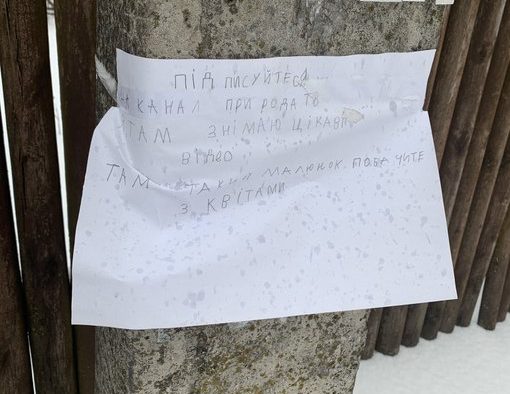 ПІДПИСУЙТЕСЬ
НА КАНАЛ ПРИРОДА ТО
ТАМ ЗНІМАЮ ЦІКАВІ
ВІДЕО
ТАМ ТАКИЙ МАЛЮНОК. ПОБАЧИТЕ
З КВІТАМИ